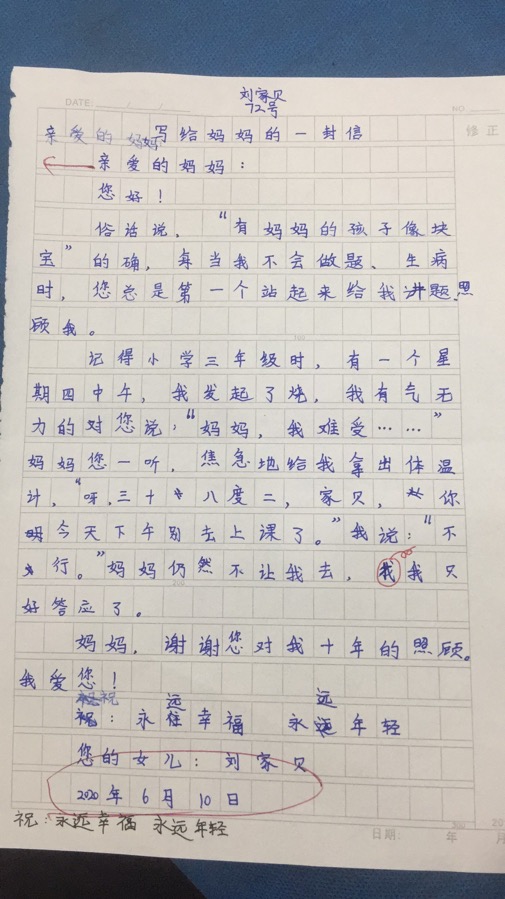 刘家贝
72号
DATE: / /
NO
亲爱的妈妈写给妈妈的一封信
修正
亲爱的妈妈：
您好！
俗话说，“有妈妈的孩子像块
宝”的确，每当我不会做题、生病
时，您总是第一个站起来给我讲题照
顾我。
记得小学三年级时，有一个星
期四中午，我发起了烧，我有气无
力的对您说，“妈妈，我难受……”
妈妈您一听，焦急地给我拿出体温
计，“呀，三十八度二，家贝，你
今天下午别去上课了。”我说：“不
行。”妈妈仍然不让我去，我我只
好答应了。
妈妈，谢谢您对我十年的照顾。
我爱您！
祝：永远幸福 永远年轻
您的女儿：刘家贝
2020年6月10日
祝：永远幸福 永远年轻
日期： 年 月